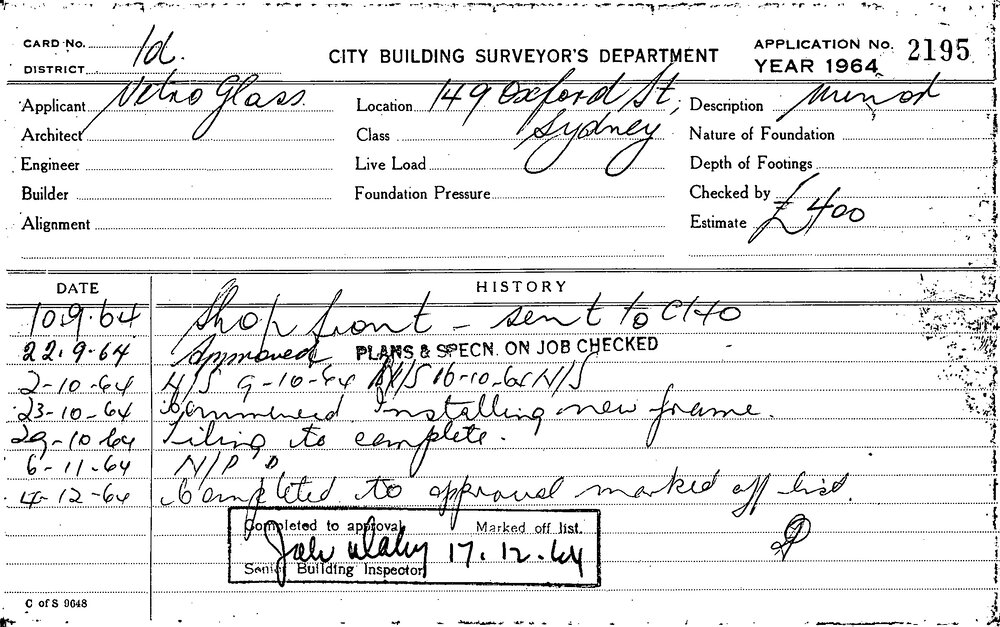 CARD No. 1d.
DISTRICT
CITY BUILDING SURVEYOR'S DEPARTMENT
APPLICATION No. 2195
YEAR 1964
Applicant Vetro Glass.
Location 149 Oxford St,
Description Minor
Architect
Class Sydney
Nature of Foundation
Engineer
Live Load
Depth of Footings
Builder
Foundation Pressure
Checked by
Alignment
Estimate £400
DATE HISTORY
10.9.64 Shop front - sent to CHO
22.9.64 Approved PLANS & SPECN. ON JOB CHECKED
2-10-64 N/S 9-10-64 N/S 16-10-64 N/S
23-10-64 Commenced Installing new frame.
29-10-64 Tiling to complete.
6-11-64 N/P "D"
4-12-64 Completed to approval marked off list.
Completed to approval Marked off list.
17.12.64
Senior Building Inspector
C of S 9648